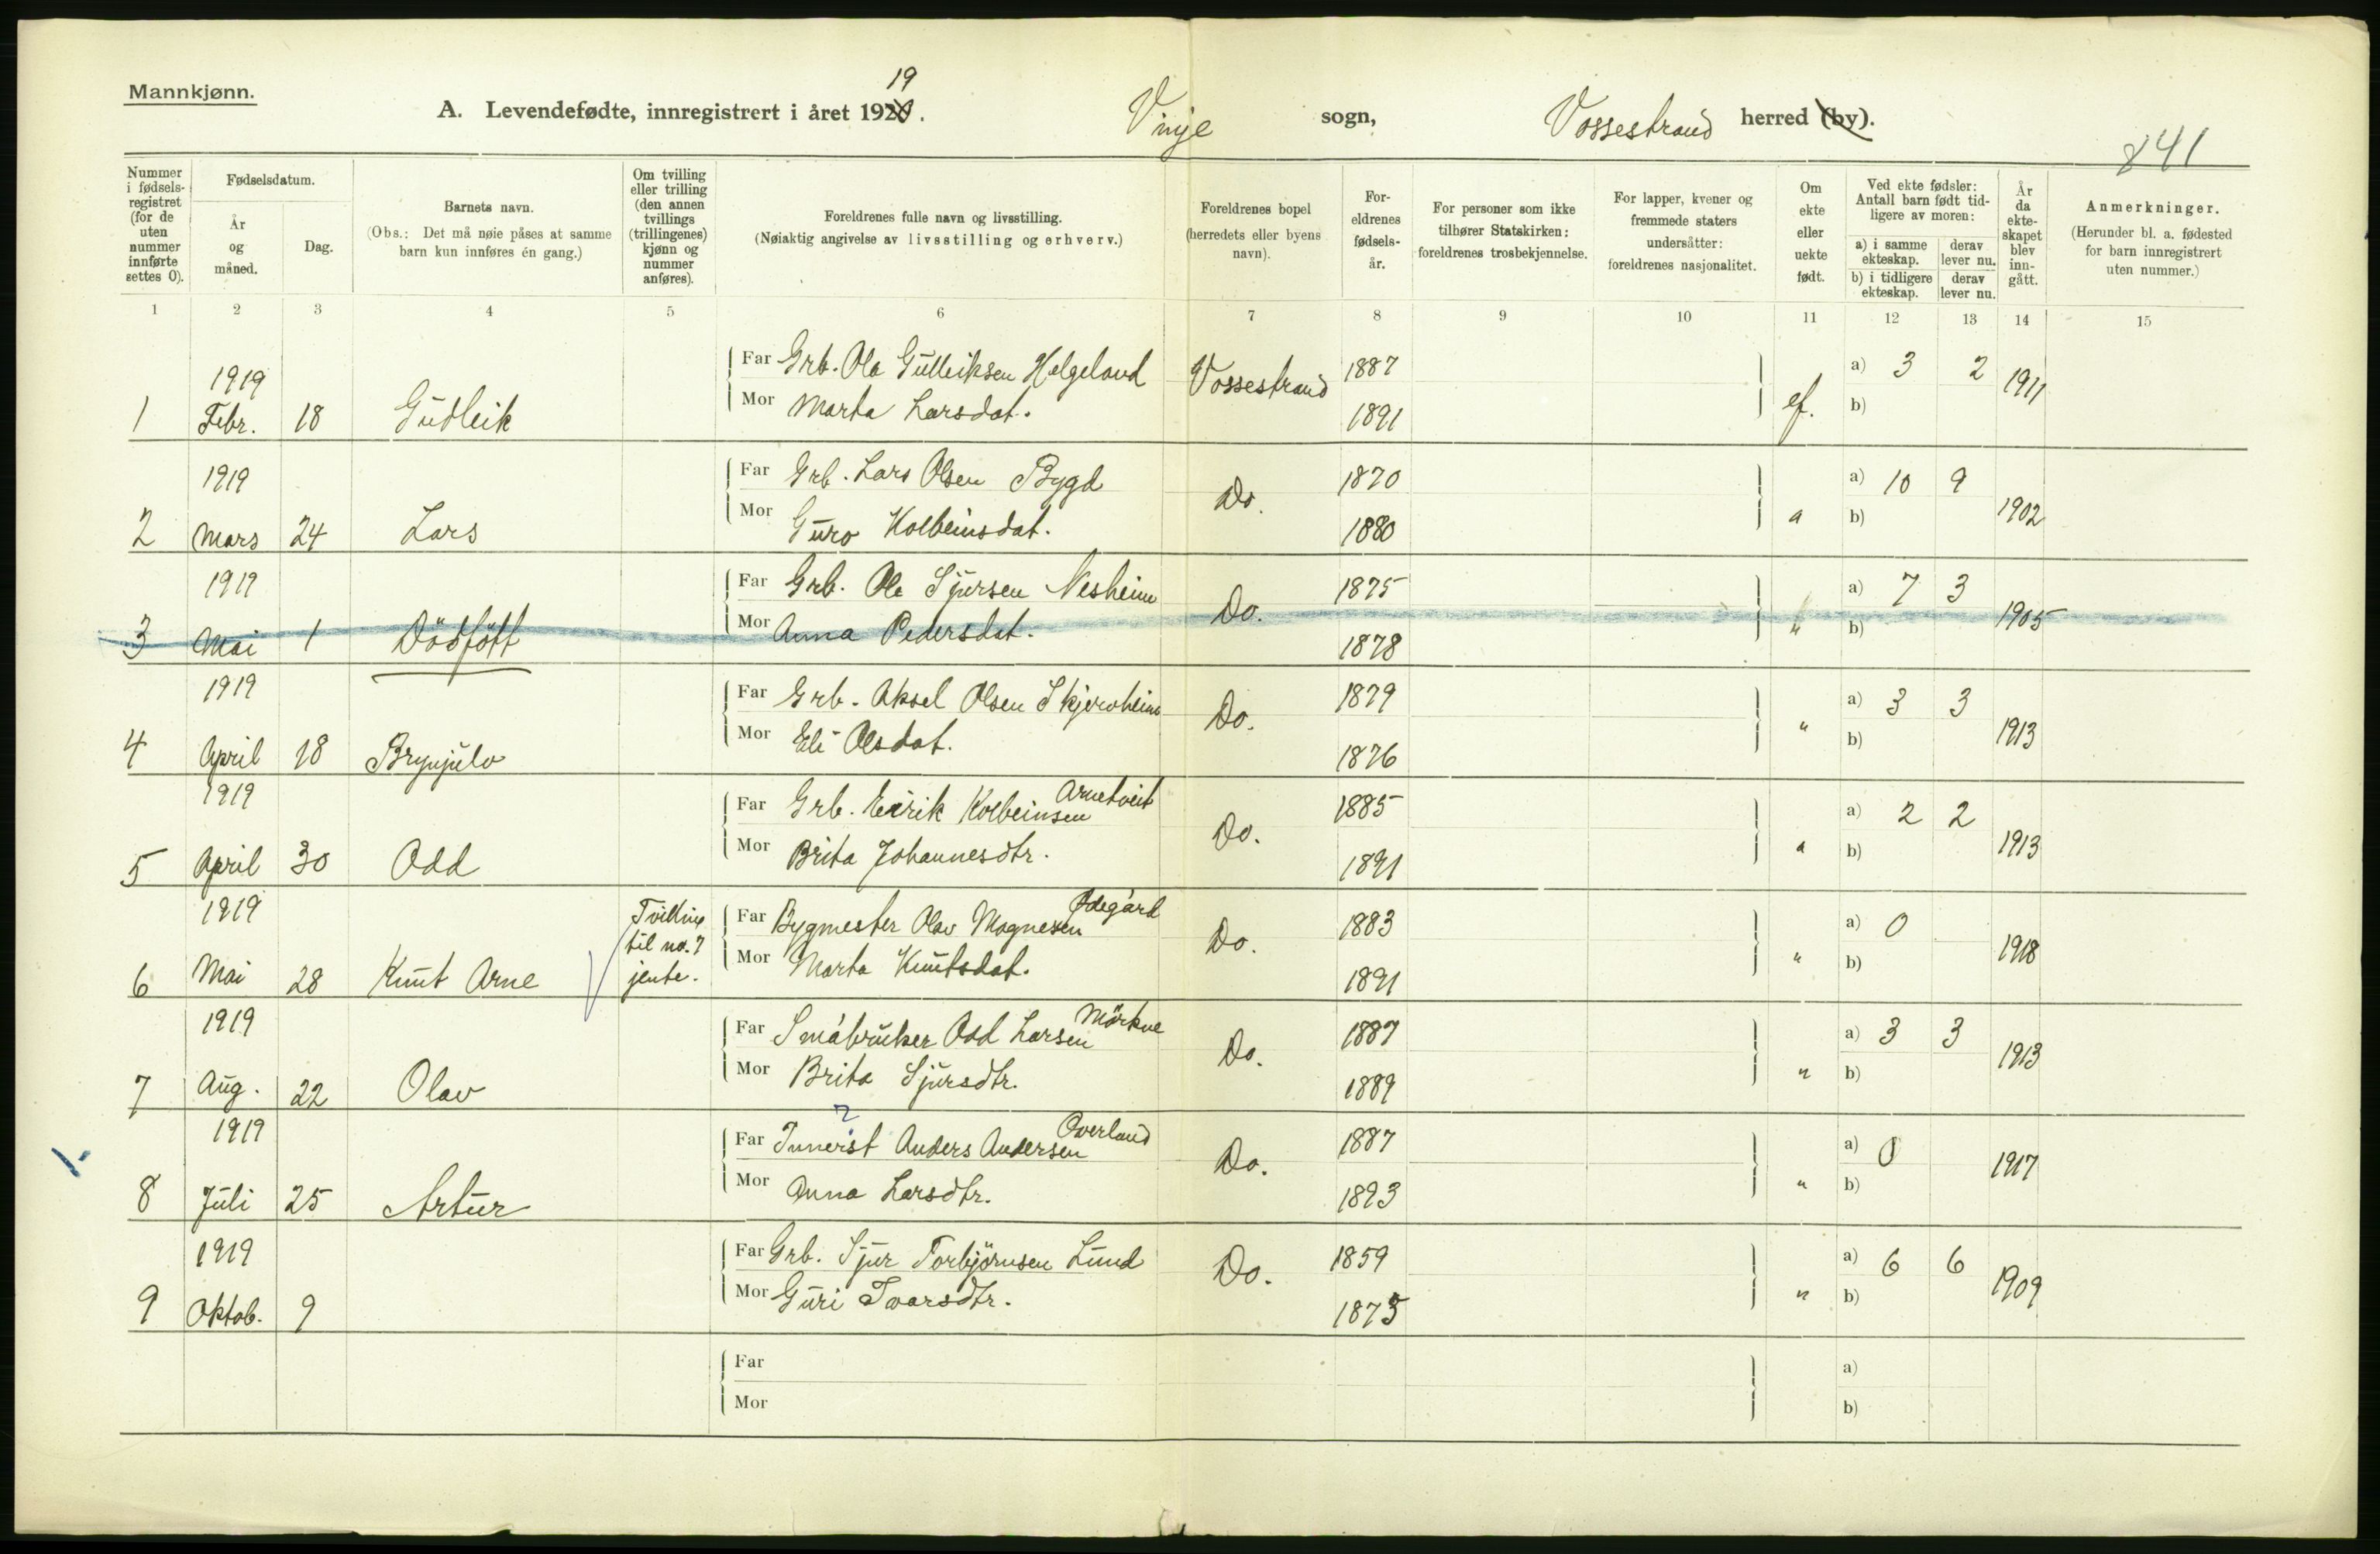 Mannkjønn.
A. Levendefødte, innregistrert i året 1920. 19 Vinje sogn, Vossestrand herred (by).
841
Nummer i fødselsregistret (for de uten nummer innførte settes 0).
Fødselsdatum.
År og måned.
Dag.
Barnets navn.
(Obs.: Det må nøie påses at samme barn kun innføres én gang.)
Om tvilling eller trilling (den annen tvillings (trillingenes) kjønn og nummer anføres).
Foreldrenes fulle navn og livsstilling.
(Nøiaktig angivelse av livsstilling og erhverv.)
Foreldrenes bopel (herredets eller byens navn).
Foreldrenes fødselsår.
For personer som ikke tilhører Statskirken: foreldrenes trosbekjennelse.
For lapper, kvener og fremmede staters undersåtter: foreldrenes nasjonalitet.
Om ekte eller uekte født.
Ved ekte fødsler: Antall barn født tidligere av moren:
a) i samme ekteskap. derav lever nu.
b) i tidligere ekteskap. derav lever nu.
År da ekteskapet blev inngått.
Anmerkninger.
(Herunder bl. a. fødested for barn innregistrert uten nummer.)
1 2 3 4 5 6 7 8 9 10 11 12 13 14 15
1919 Far Grb. Ola Gulleiksen Helgeland Vossestrand 1887 a) 3 2 1911
1 Febr. 18 Gudleik Mor Marta Larsdat. 1891 ef. b)
1919 Far Grb. Lars Olsen Bygd Do. 1870 a) 10 9 1902
2 Mars 24 Lars Mor Guro Kolbeinsdat. 1880 " b)
1919 Far Grb. Ole Sjursen Nesheim Do. 1875 a) 7 3 1905
3 Mai 1 Dödfött Mor Anna Pedersdat. 1878 " b)
1919 Far Grb. Aksel Olsen Skjervheim Do. 1879 a) 3 3 1913
4 April 18 Brynjulv Mor Eli Olsdat. 1876 " b)
1919 Far Grb. Eirik Kolbeinsen Arnetveit Do. 1885 a) 2 2 1913
5 April 30 Odd Mor Brita Johannesdtr. 1891 " b)
1919 Tvilling til no. 7 jente. Far Bygmester Olav Magnesen Ødegård Do. 1883 a) 0 1918
6 Mai 28 Knut Arne Mor Marta Knutsdat. 1891 " b)
1919 Far Småbruker Odd Larsen Mörkve Do. 1887 a) 3 3 1913
7 Aug. 22 Olav Mor Brita Sjursdtr. 1889 " b)
1919 Far Innerst ? Anders Andersen Överland Do. 1887 a) 0 1917
8 Juli 25 Artur Mor Anna Larsdtr. 1893 " b)
1919 Far Grb. Sjur Torbjörnsen Lund Do. 1859 a) 6 6 1909
9 Oktob. 9 Mor Guri Ivarsdtr. 1873 " b)
Far a)
Mor b)